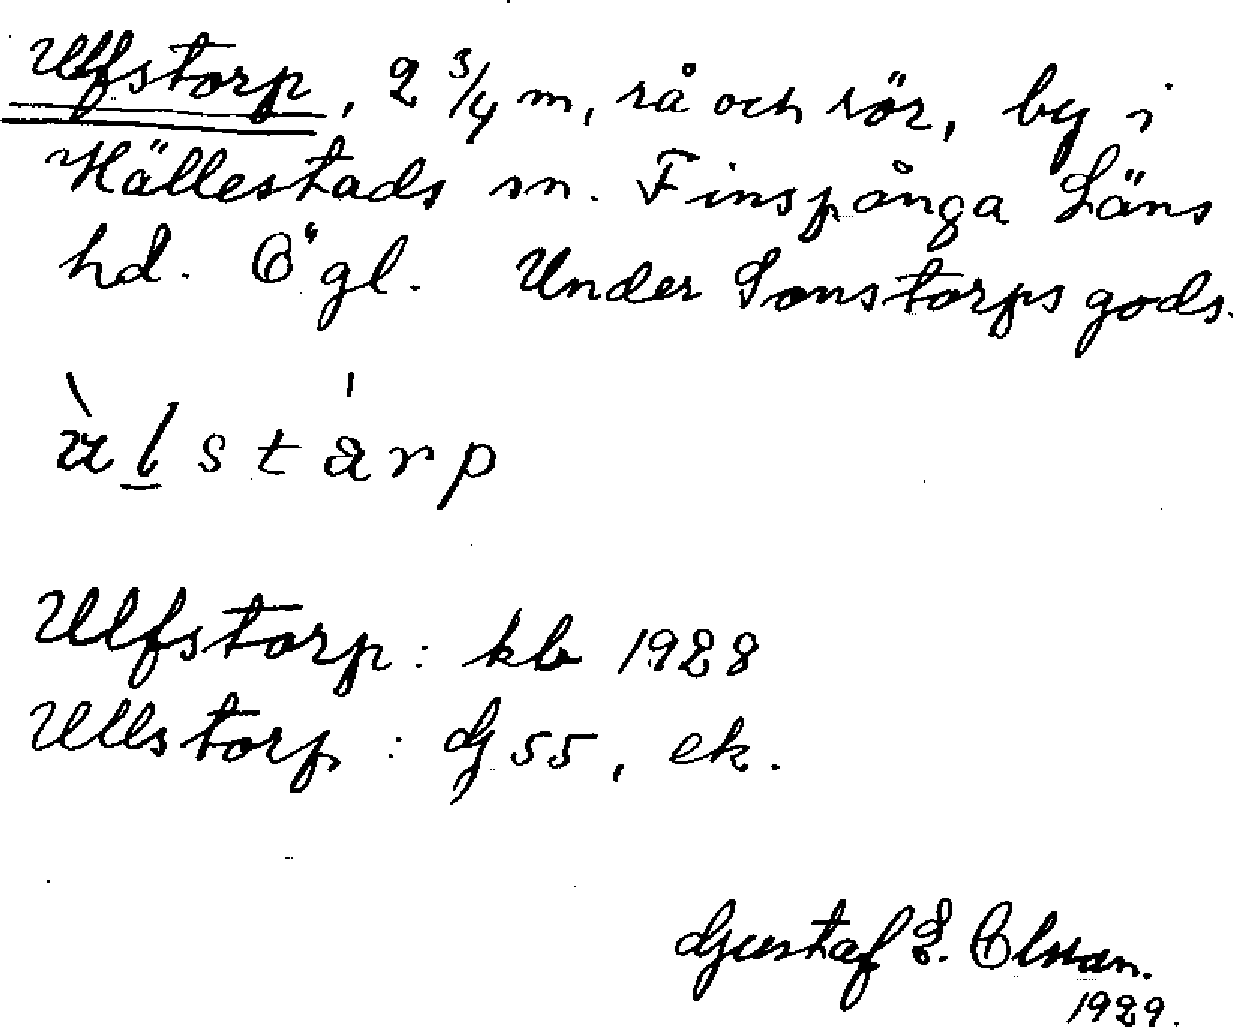 Ulfstorp, 2 3/4 m, rå och rör, by i
Hällestads sn. Finspånga Läns
hd. Ögl. Under Sonstorps gods.
Ulfstorp: kb 1928
Ullstorp: G 55, ek.
Gustaf E. Olsson.
1929.